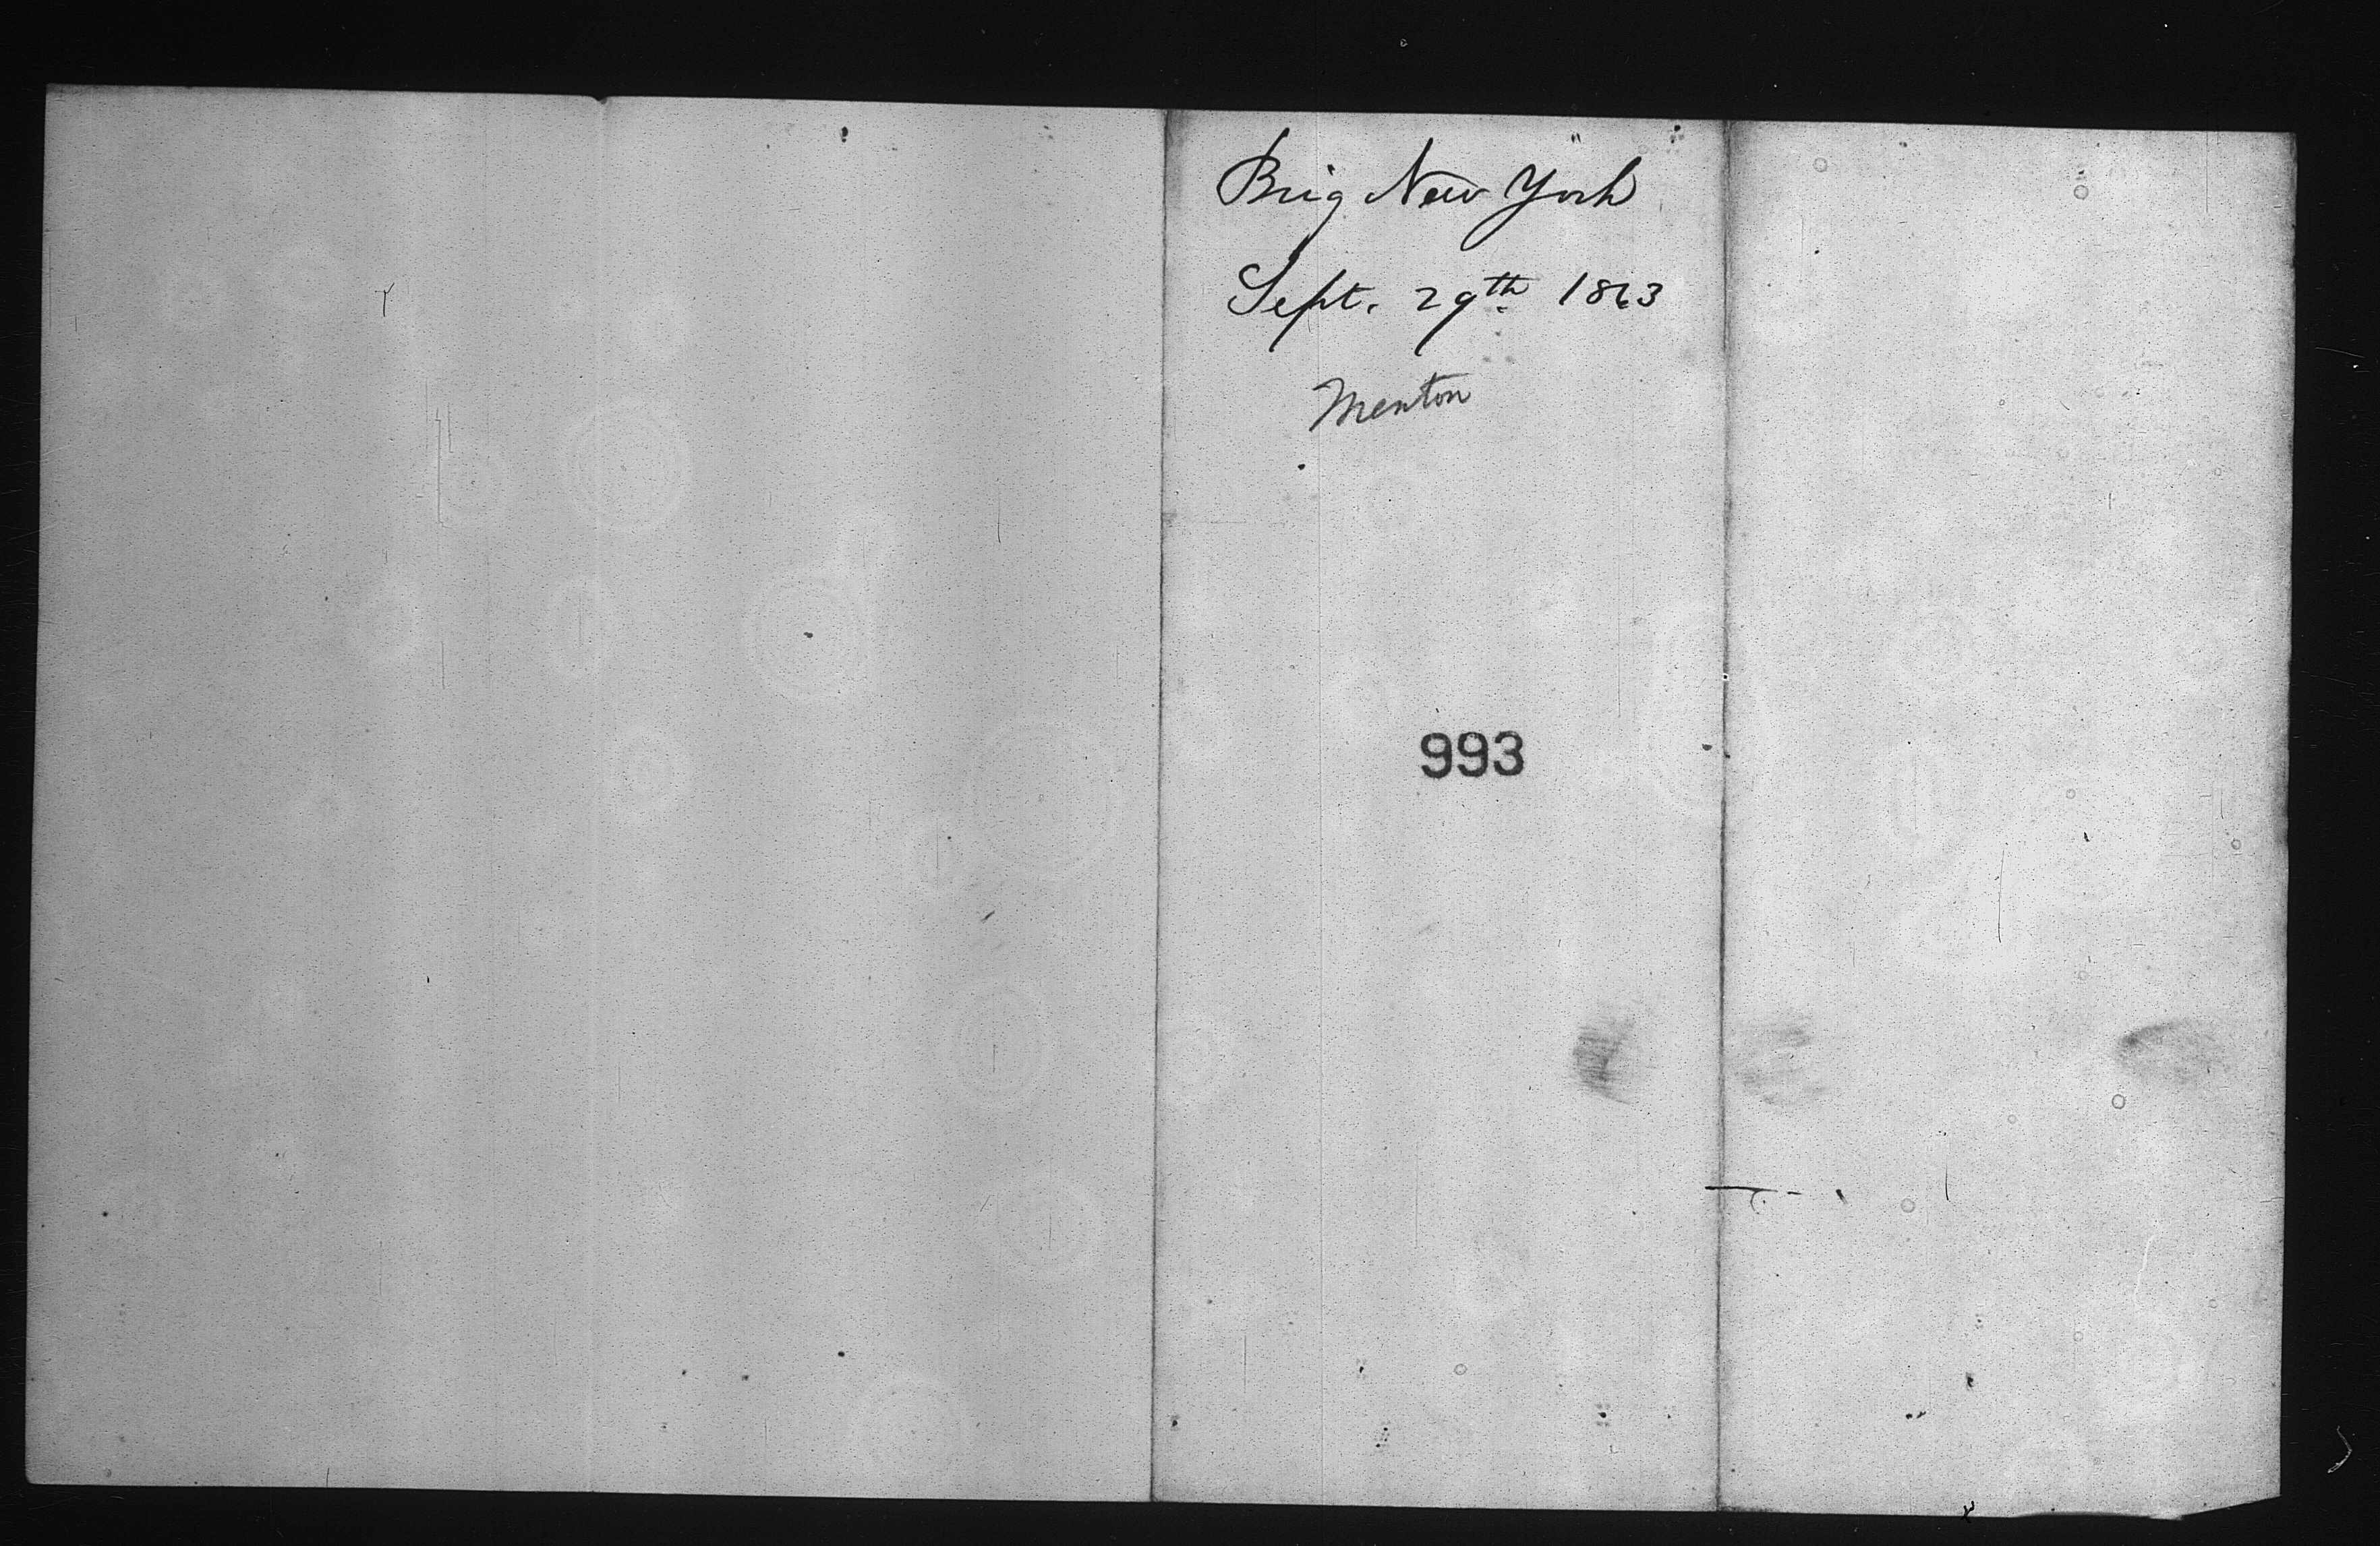 Brig New York
Sept. 29th 1863
Menton
993